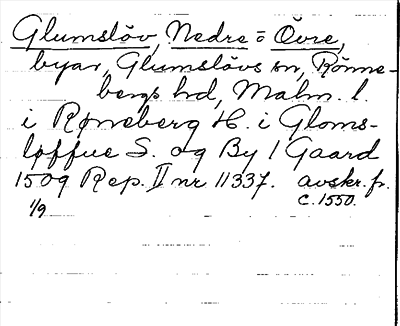 Glumslöv, Nedre = Övre,
byar, Glumslövs sn, Rönne-
bergs hd, Malm. l.
i Røneberg H. i Gloms-
løffue S. og By 1 Gaard
1509 Rep. II nr 11337. avskr. fr.
1/9 c. 1550.